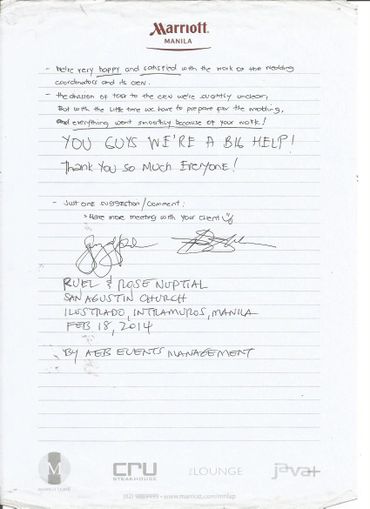 Marriott.
MANILA
- We're very happy and satisfied with the work of the wedding
coordinators and its crew.
- the division of task to the crew were slightly unclear,
But with the little time we have to prepare for the wedding,
and everything went smoothly because of your work!
YOU GUYS WE'RE A BIG HELP!
Thank You So Much Everyone!
- Just one suggestion/comment:
> Have more meeting with your client
RUEL & ROSE NUPTIAL
SAN AGUSTIN CHURCH
ILUSTRADO, INTRAMUROS, MANILA
FEB 18, 2014
BY AEB EVENTS MANAGEMENT
M
CRU
STEAKHOUSE
THE LOUNGE
java+
www.marriott.com/mnlap